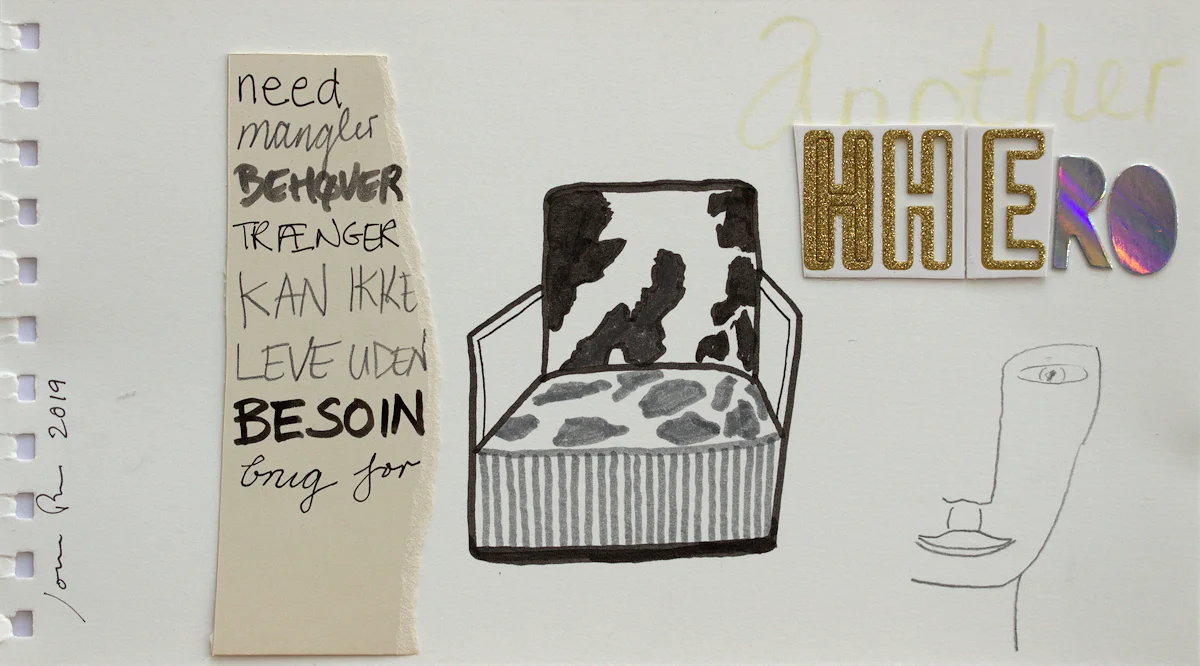 need
mangler
BEHØVER
TRÆNGER
KAN IKKE
LEVE UDEN
BESOIN
brug for
another
HHERO
2019